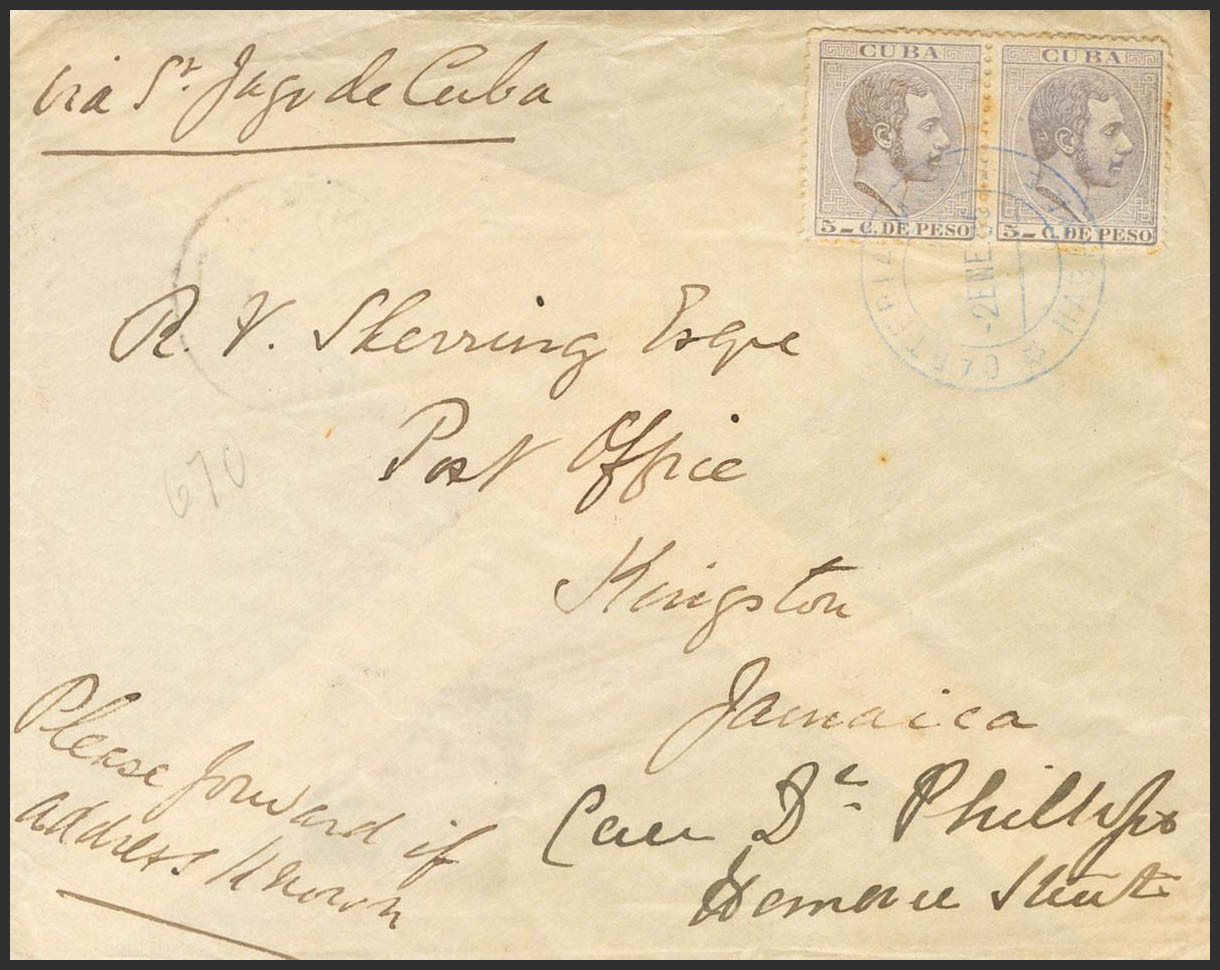 via St. Jago de Cuba
CUBA
5 - C. DE PESO
CUBA
5 - C. DE PESO
-2 ENE
HABA
R. V. Sherring Esqre
Post Office
670
Kingston
Jamaica
Please forward if
address known
Care Dr. Phillips
Street